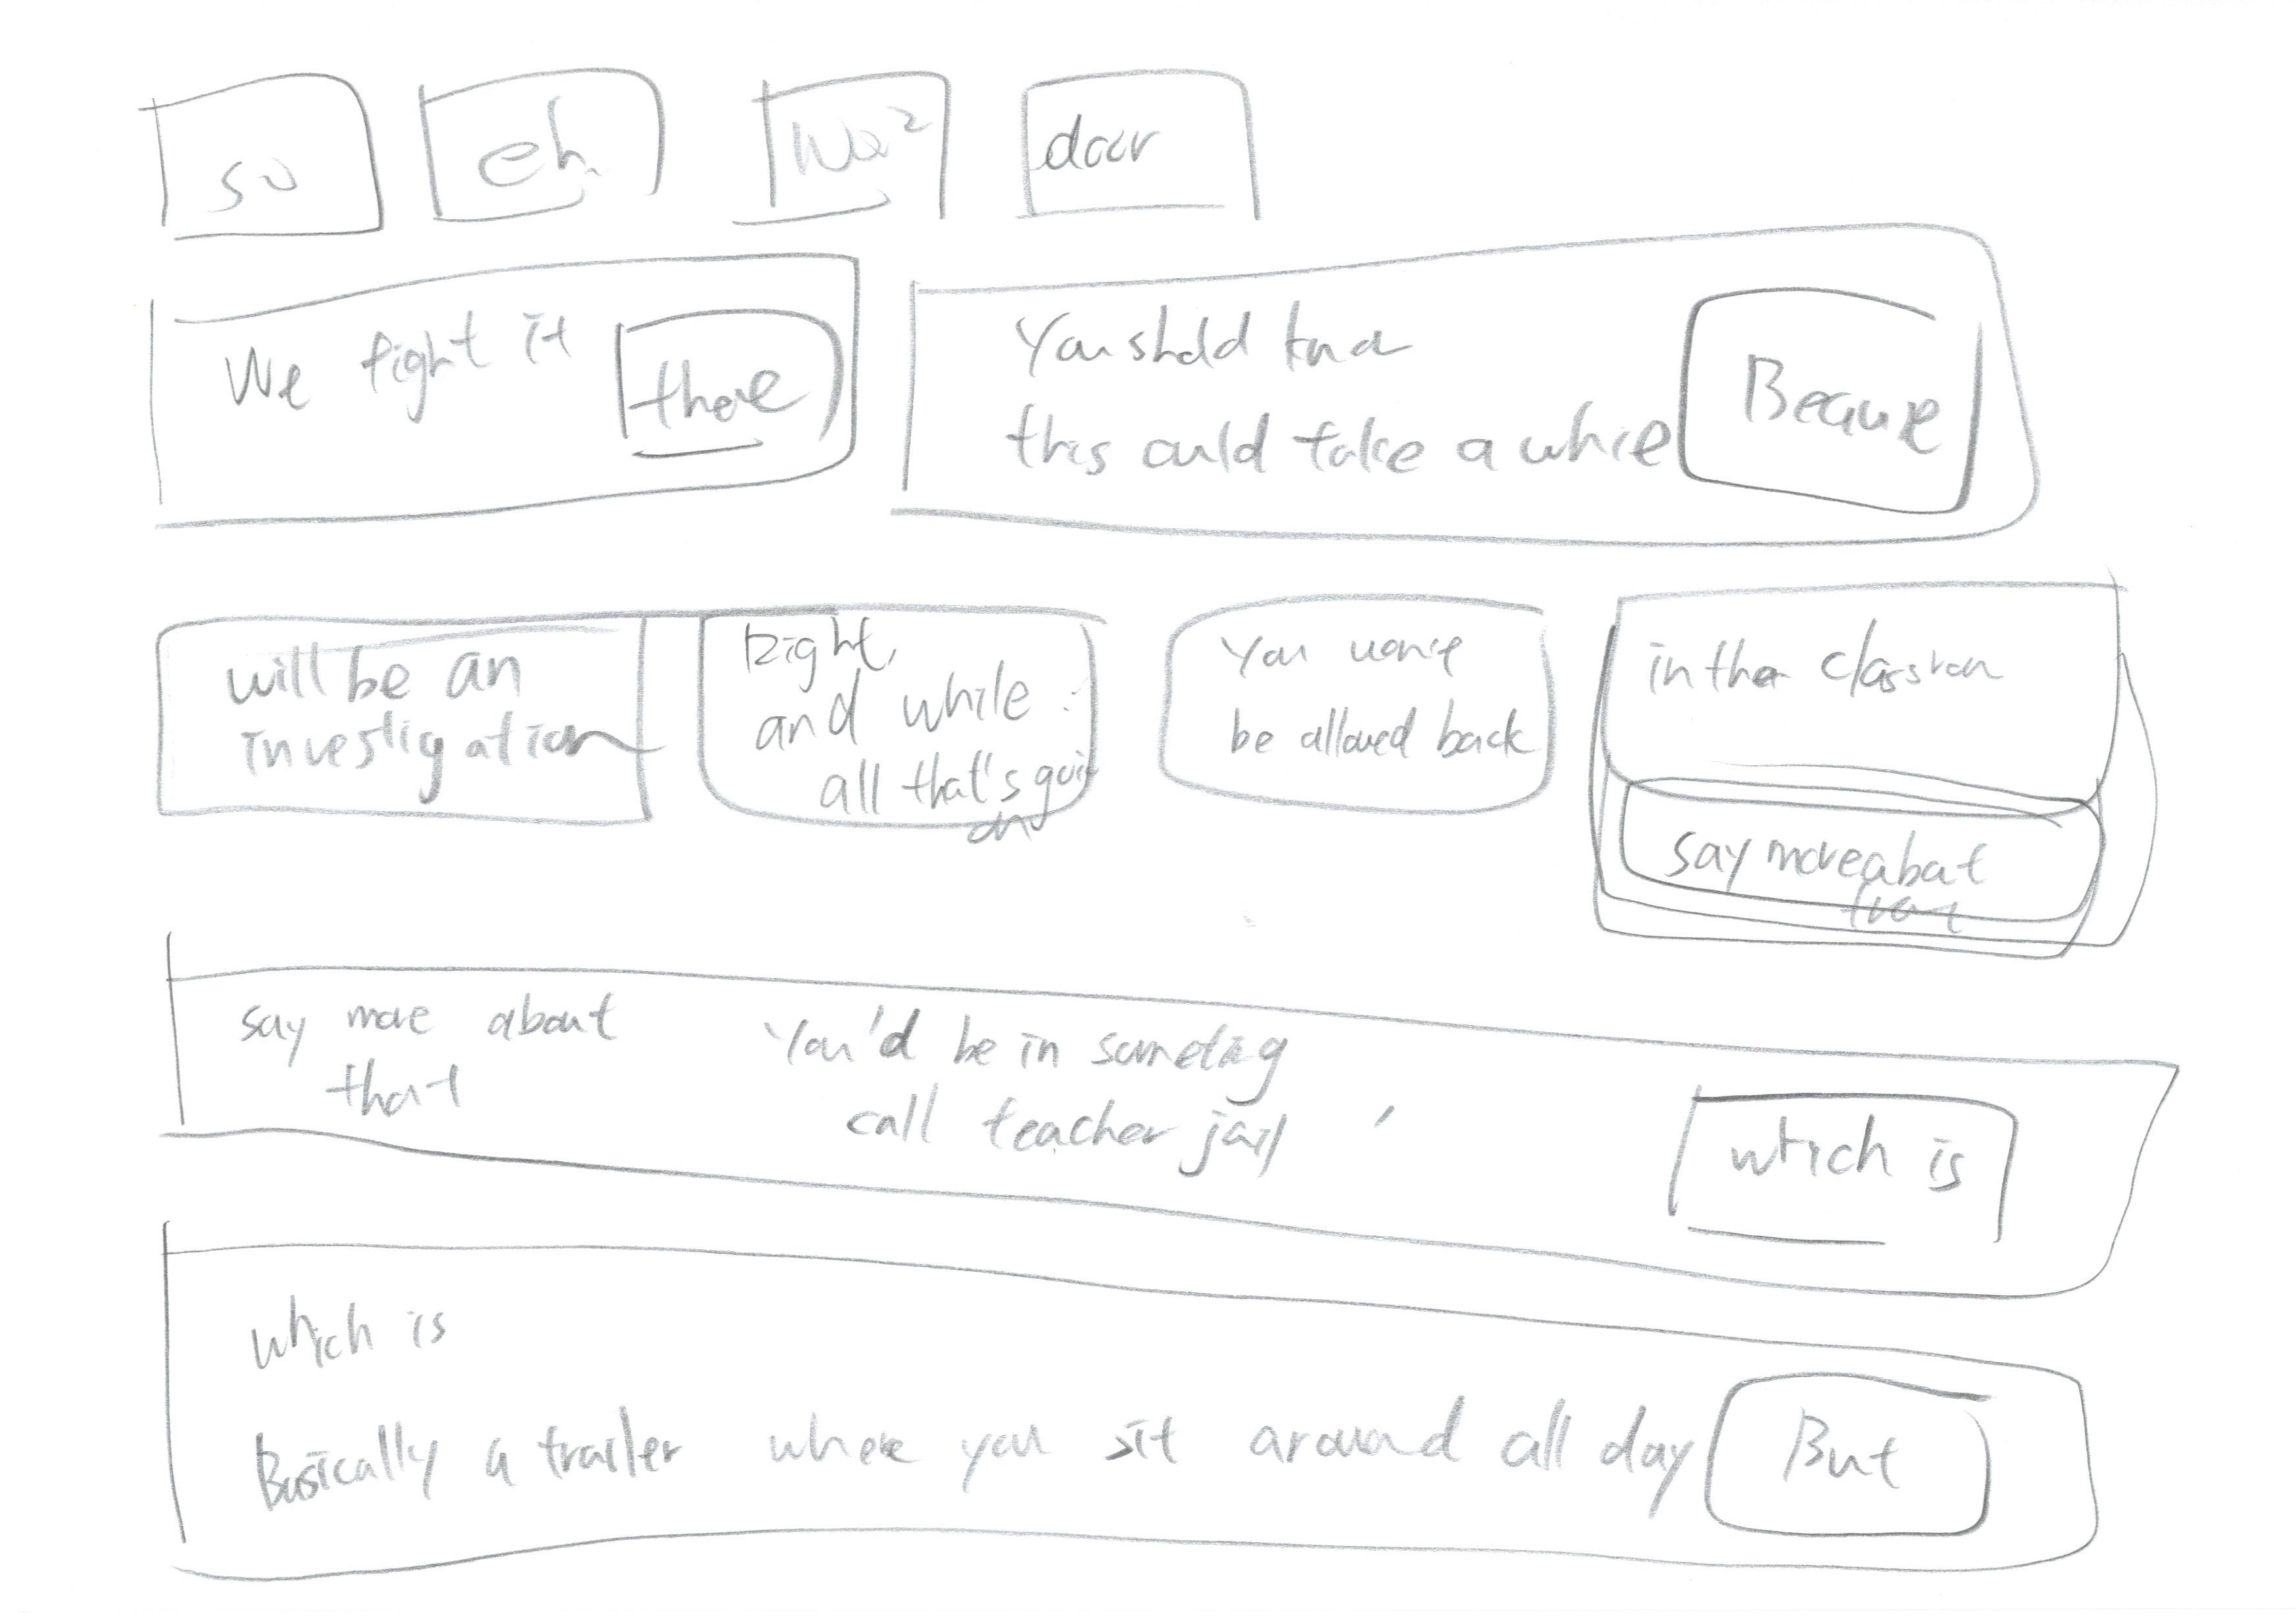 so eh door
We fight it there
You shold
this could take a while Because
will be an
investigation
Right,
and while
all that's goin
on
You won't
be allowed back
in ther classron
say more about
that
say more about
that
You'd be in someting
call teacher jail,
which is
which is
Basically a trailer where you sit around all day But